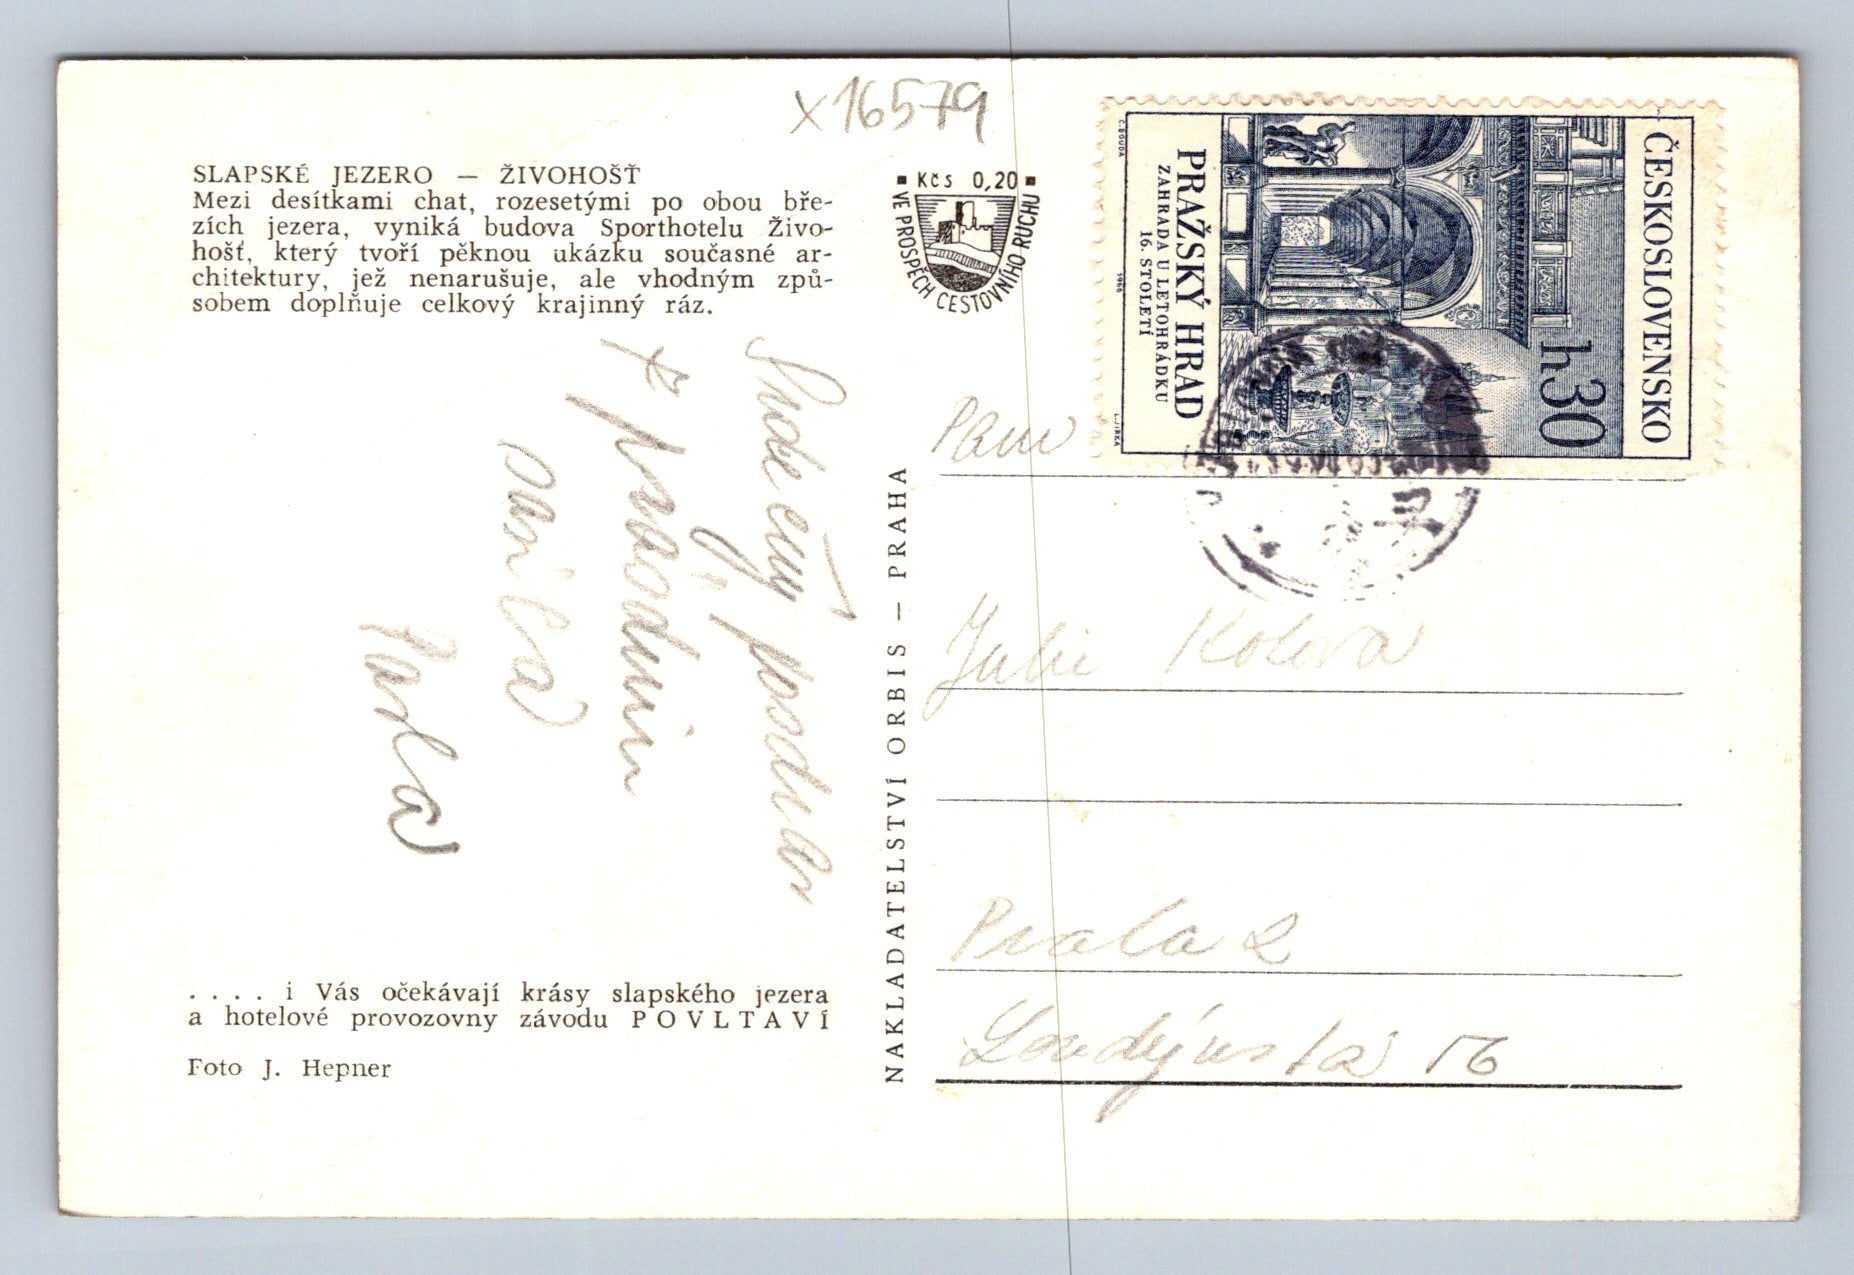 x16579
SLAPSKÉ JEZERO — ŽIVOHOŠŤ
Mezi desítkami chat, rozesetými po obou bře-
zích jezera, vyniká budova Sporthotelu Živo-
hošť, který tvoří pěknou ukázku současné ar-
chitektury, jež nenarušuje, ale vhodným způ-
sobem doplňuje celkový krajinný ráz.
Srdečný pozdrav
z prázdnin
posílá
Pavla
. . . . i Vás očekávají krásy slapského jezera
a hotelové provozovny závodu POVLTAVÍ
Foto J. Hepner
NAKLADATELSTVÍ ORBIS — PRAHA
Kčs 0,20
VE PROSPĚCH CESTOVNÍHO RUCHU
ČESKOSLOVENSKO
h30
PRAŽSKÝ HRAD
ZAHRADA U LETOHRÁDKU
16. STOLETÍ
C. BOUDA
1966
L. JIRKA
Paní
Julie
Praha 2
Londýnská 56